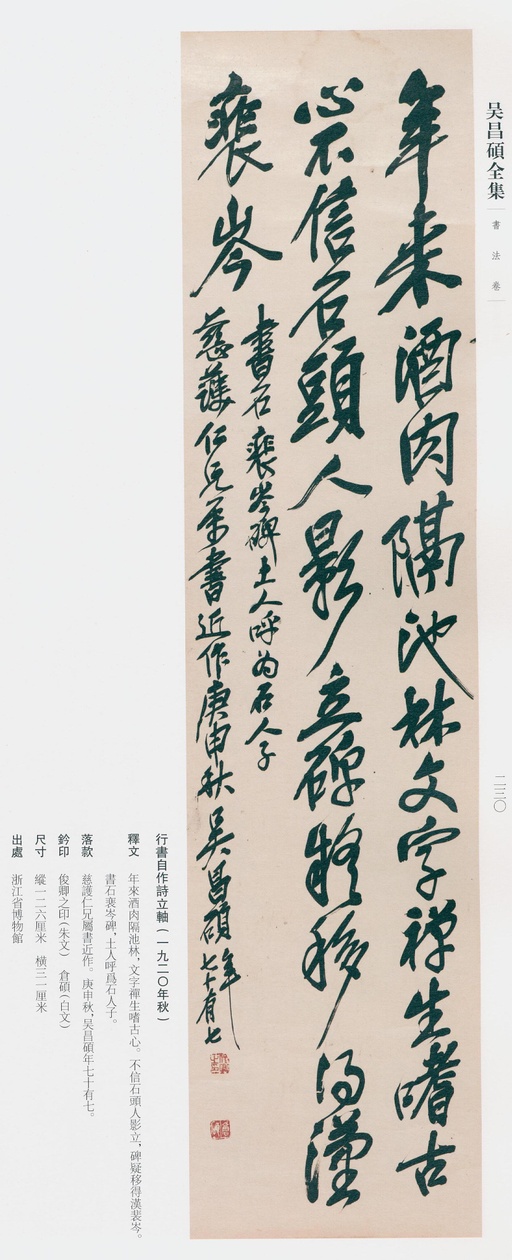 吴昌碩全集
書法卷
二二〇
年来酒肉隔池林文字禅生嗜古
心不信石頭人影立碑疑移得漢
裴岑
書石裴岑碑土人呼为石人子
慈護仁兄属書近作庚申秋吴昌碩年七十有七
行書自作詩立軸（一九二〇年秋）
釋文　年來酒肉隔池林，文字禪生嗜古心。不信石頭人影立，碑疑移得漢裴岑。
書石裴岑碑，土人呼爲石人子。
落款　慈護仁兄屬書近作。庚申秋，吴昌碩年七十有七。
鈐印　俊卿之印（朱文）　倉碩（白文）
尺寸　縱一二六厘米　橫三一厘米
出處　浙江省博物館